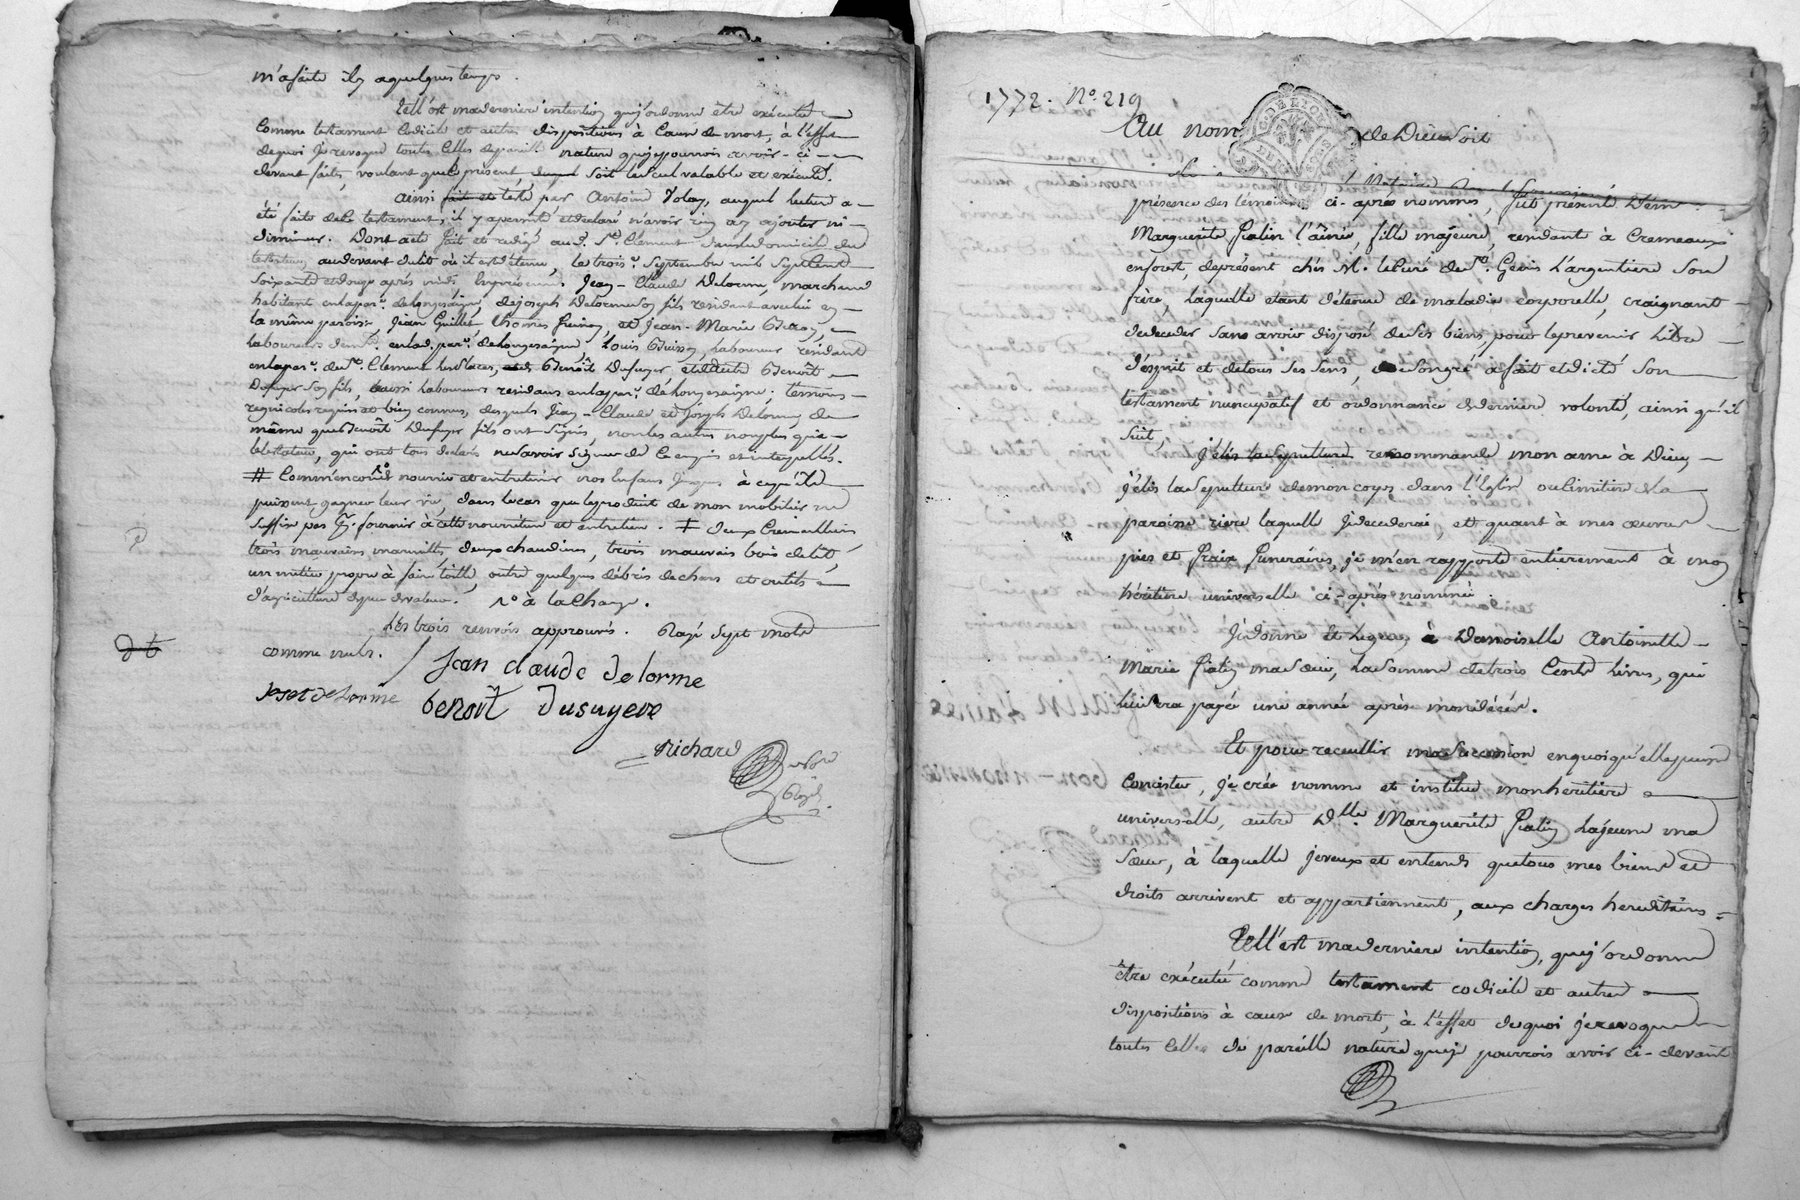 m'a faite il y a quelques temps.
Tell'est ma derniere intention que j'ordonne être exécutée
comme testament codicile et autres dispositions à cause de mort, à l'effet
dequoi je revoque toutes celles de pareille nature que je pourrois avoir ci-
devant faites, voulant que le présent soit le seul valable et exécuté.
ainsi fait et testé par Antoine Volay, auquel lecture a
été faite de ce testament, il y a persisté et declaré n'avoir rien a y ajouter ni
diminuer. Dont acte fait et redigé aud. St. Clement dans le domicile du
testateur, au devant du lit où il est détenu, le trois Septembre mil Septcent
Soixante et douze après midi En présence de Jean-Claude Delorme, marchand
habitant en la parr. de hongesaigne, de joseph Delorme son fils résident avec lui en
la même paroisse, Jean Guillet, Thomas et Jean-Marie
laboureurs de lad. parr. de hongesaigne, Louis laboureur résidant
en la parr. de St. Clement les places, Benôit Dusuyer et Benoît
Dusuyer son fils, aussi laboureurs residans en la parr. de hongesaigne; temoins
regnicoles requis et bien connus, desquels Jean-Claude et Joseph Delorme, de
même que Benoît Dusuyer fils ont signés, non les autres non plus que
le testateur, qui ont tous declaré ne savoir signer de ce enquis et interpellés.
# nourrir et entretenir nos Enfans jusques à ce qu'ils
puissent gagner leur vie, dans le cas que le produit de mon mobilier ne
suffise pas pr. fournir à cette nourriture et entretien. # deux Cremaillieres
trois mauvaises marmittes, deux chaudieres, trois mauvais bois de lit,
un métier propre à faire toille, outre quelques débris de chars et outils
d'agriculture de peu de valeur. à la Charge.
Les trois renvois approuvés. Rayé sept mots
comme nuls.
Jean claude delorme
Joset delorme
benoit dusuyere
Richard
1772. No. 219
Au nom de Dieu Soit
Notaire
présence des témoins ci-après nommés, fut présente Dem.
Marguerite Fialin l'ainée, fille majeure, residant à Cremeaux
en forest, de présent chés M. le curé de St. Genis L'argentiere Son
frère, laquelle étant détenue de maladie corporelle, craignant
de deceder sans avoir disposé de ses biens, pour le prevenir libre
d'esprit et de tous ses sens, de son gré a fait et dicté son
testament nuncupatif et ordonnance de derniere volonté, ainsi qu'il
suit,
j'élis la sepulture recommande mon ame à Dieu,
j'élis la sepulture de mon corps dans l'Eglise ou cimetiere de la
paroisse riere laquelle je decederai, et quant à mes œuvres
pies et fraix funeraires, je m'en rapporte entierement à mon
héritiere universelle ci-après nommée.
Je donne et legue à Demoiselle Antoinette
Marie Fialin ma sœur, la somme de trois Cents livres, qui
lui sera payée une année après mon décès.
Et pour recueillir ma succession en quoi qu'elle puisse
Consister, je crée nomme et institue mon héritiere
universelle, autre Dlle. Marguerite Fialin la jeune ma
sœur, à laquelle je veux et entends que tous mes biens et
droits arrivent et appartiennent, aux charges hereditaires.
Tell'est ma derniere intention, que j'ordonne
être exécutée comme testament codicile et autre
dispositions à cause de mort, à l'effet dequoi je revoque
toutes celles de pareille nature que je pourrois avoir ci-devant